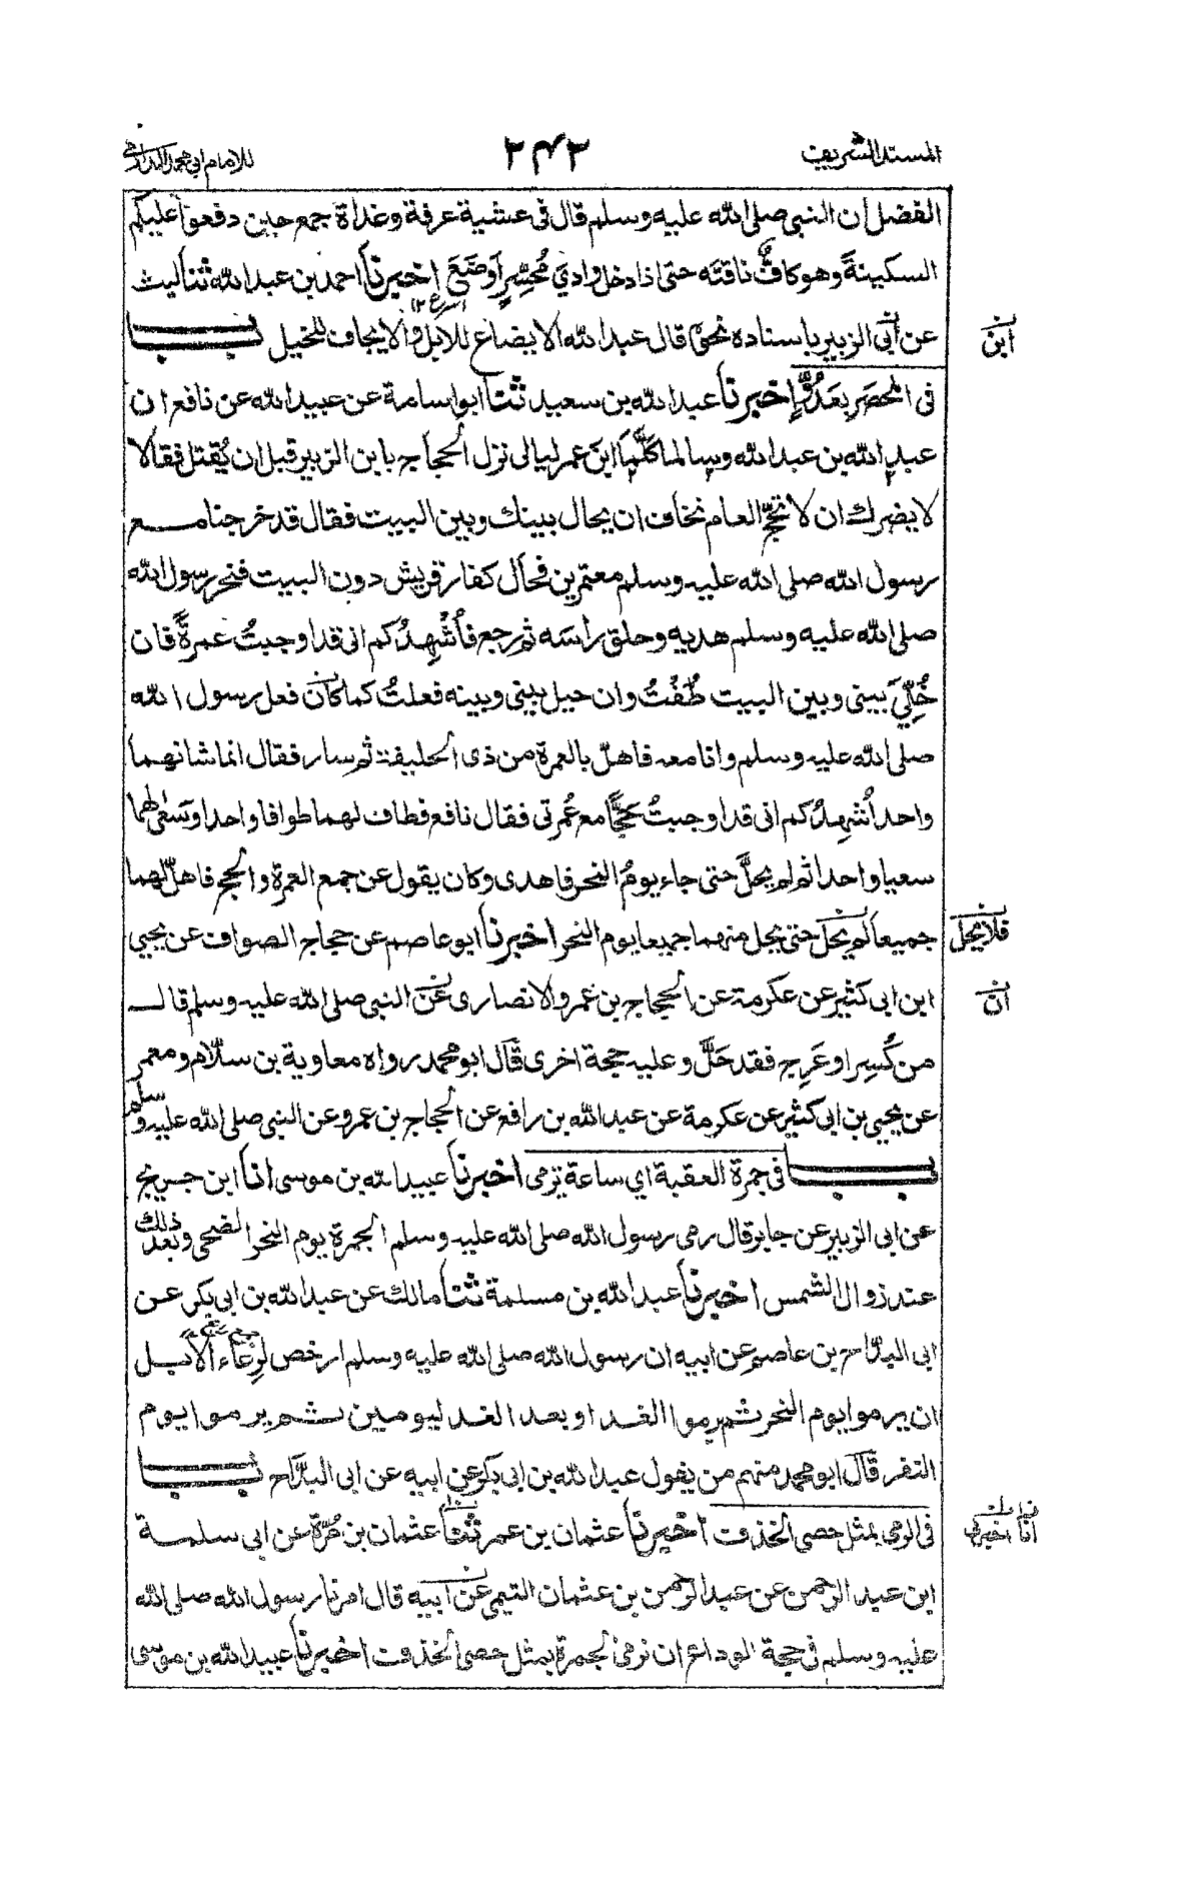 المسند الشريف
٢٤٢
للامام ابي محمد الدارمي
الفضل أن النبي صلى الله عليه وسلم قال في عشية عرفة وغداة جمع حين دفعوا عليكم
السكينةَ وهو كافٌّ ناقتَه حتى اذا دخل وادِيَ مُحَسِّرٍ أوضَعَ اخبرنا احمد بن عبد الله ثنا ليث
اسرع ١٢
عن أبي الزبير باسناده نحوَه قال عبد الله الايضاع للابل والايجاف للخيل باب
ابن
في المحصَر بعَدُوٍّ اخبرنا عبد الله بن سعيد ثنا ابو اسامة عن عبيد الله عن نافع ان
عبد الله بن عبد الله وسالما كلَّما ابنَ عمر ليالى نزل الحجاج بابن الزبير قبل ان يُقتل فقالا
لا يضرك ان لا تحجّ العام نخاف ان يحال بينك وبين البيت فقال قد خرجنا مع
رسول الله صلى الله عليه وسلم معتمرين فحال كفار قريش دون البيت فنحر رسول الله
صلى الله عليه وسلم هديه وحلق راسَه ثم رجع فأُشْهِدُكم اني قد اوجبتُ عمرةً فان
خُلِّيَ بيني وبين البيت طُفْتُ وان حيل بيني وبينه فعلتُ كما كان فعل رسول الله
صلى الله عليه وسلم وانا معه فاهلّ بالعمرة من ذي الحليفة ثم سار فقال انما شانهما
واحد اُشهِدُكم اني قد اوجبتُ حَجًّا مع عُمرتي فقال نافع فطاف لهما طوافا واحدا وسَعَى لهما
سعيا واحدا ثم لم يحلَّ حتى جاء يومُ النحر فاهدى وكان يقول عن جمع العمرة والحج فاهلّ لهما
جميعاً لم يحلّ حتى يحل منهما جميعا يوم النحر اخبرنا ابو عاصم عن حجاج الصواف عن يحيى
فلا يحل
ابن ابي كثير عن عكرمة عن الحجاج بن عمرو الانصاري عن النبي صلى الله عليه وسلم قال
ان
من كُسِر او عَرِج فقد حَلَّ وعليه حجة اخرى قال ابو محمد رواه معاوية بن سلّام ومعمر
عن يحيى بن ابي كثير عن عكرمة عن عبد الله بن رافع عن الحجاج بن عمرو عن النبي صلى الله عليه وسلم
باب في جمرة العقبة اي ساعة ترمى اخبرنا عبيد الله بن موسى انا ابن جريج
عن ابي الزبير عن جابر قال رمى رسول الله صلى الله عليه وسلم الجمرة يوم النحر الضحى وبعد ذلك
عند زوال الشمس اخبرنا عبد الله بن مسلمة ثنا مالك عن عبد الله بن ابي بكر عن
ابي البدّاح بن عاصم عن ابيه ان رسول الله صلى الله عليه وسلم ارخص لرِعاء الابل
ان يرموا يوم النحر ثم يرموا الغد او بعد الغد ليومين ثم يرموا يوم
النفر قال ابو محمد منهم من يقول عبد الله بن ابي بكر عن ابيه عن ابي البدّاح باب
في الرمي بمثل حصى الخذف اخبرنا عثمان بن عمر ثنا عثمان بن مُرّة عن ابي سلمة
انا اخبرني
ابن عبد الرحمن عن عبد الرحمن بن عثمان التيمي عن ابيه قال امرنا رسول الله صلى الله
عليه وسلم في حجة الوداع ان نرمي الجمرة بمثل حصى الخذف اخبرنا عبيد الله بن موسى